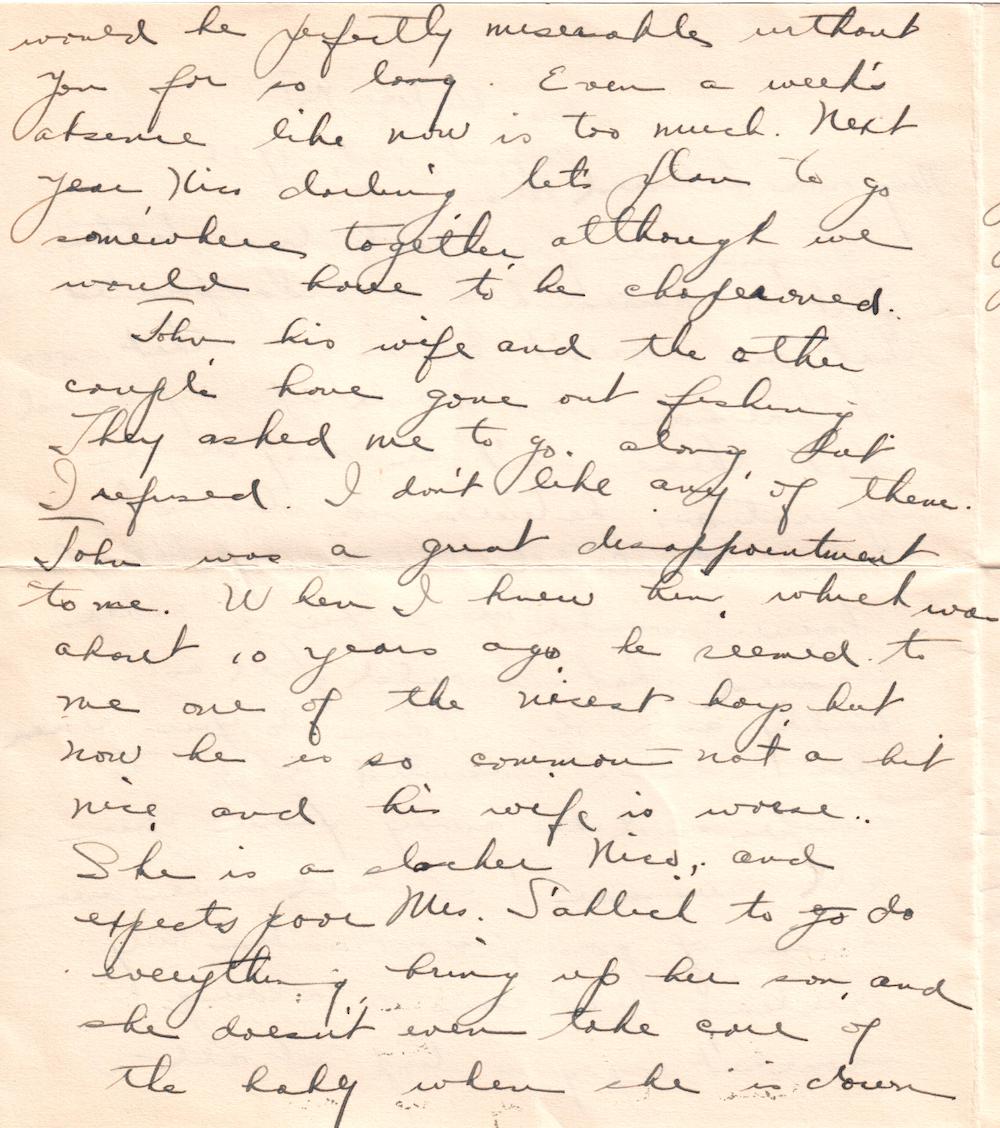 would be perfectly miserable without
you for so long. Even a week's
absence like now is too much. Next
year Nico darling let's plan to go
somewhere together, although we
would have to be chaperoned.
John his wife and the other
couple have gone out fishing
They asked me to go along, but
I refused. I don't like any of them.
John was a great disappointment
to me. When I knew him, which was
about 10 years ago, he seemed to
me one of the nicest boys, but
now he is so common not a bit
nice, and his wife is worse..
She is a slacker Nico, and
expects poor Mrs. to go do
everything, bring up her son, and
she doesn't even take care of
the baby when she is down